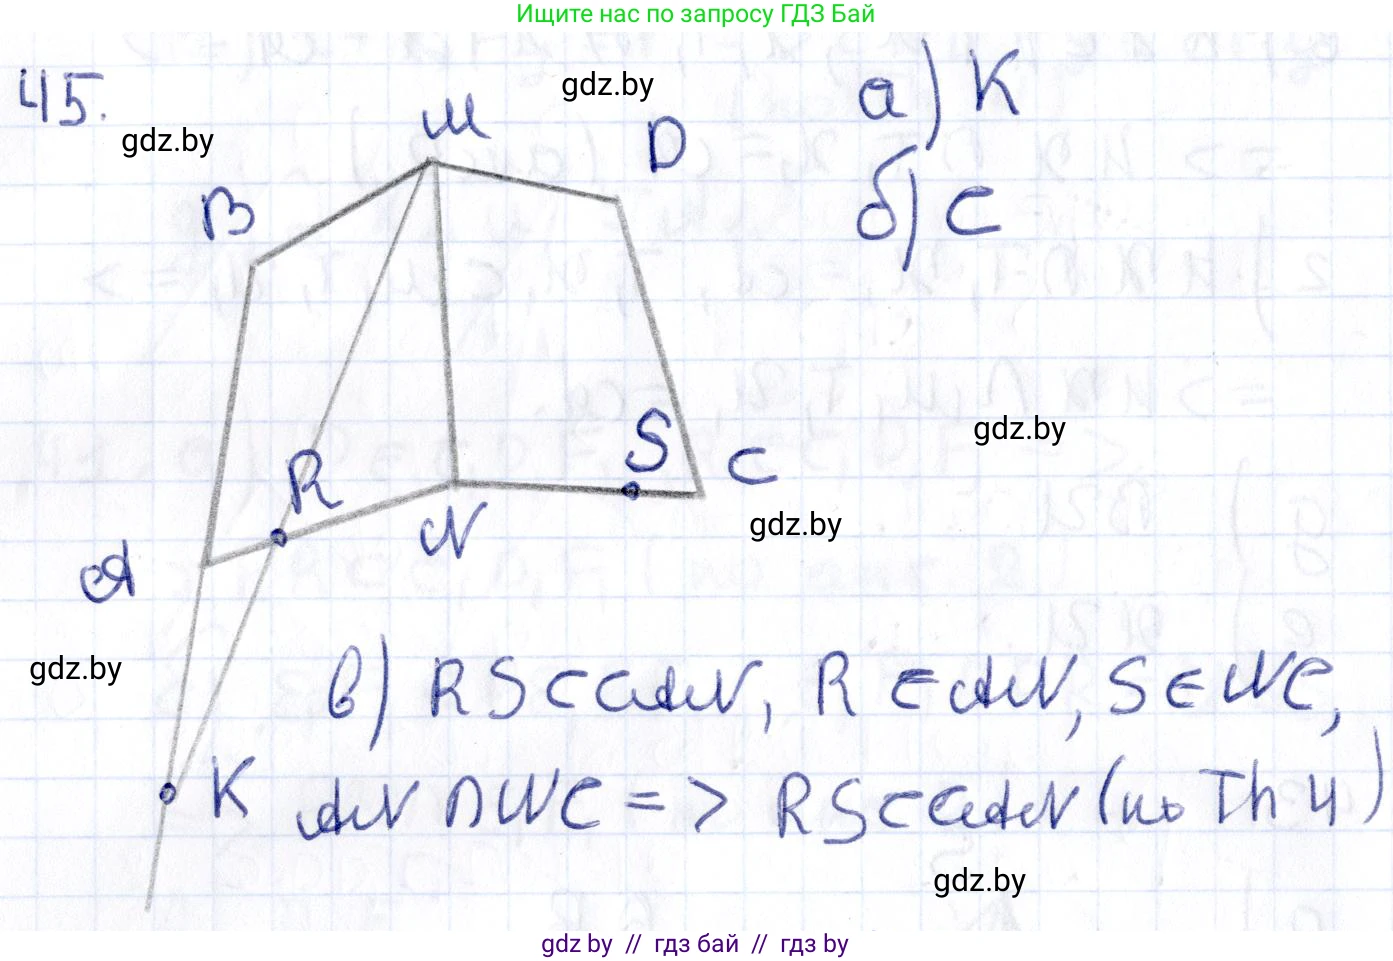 Ищите нас по запросу ГДЗ Бай
45.
gdz.by
gdz.by
M
D
B
а) K
б) C
R
S
C
gdz.by
gdz.by
N
A
gdz.by
K
в) RS ⊂ CAN, R ∈ AN, S ∈ NC,
AN ∩ NC => RS ⊂ CAN (по Th 4)
gdz.by
gdz by // гдз бай // гдз by